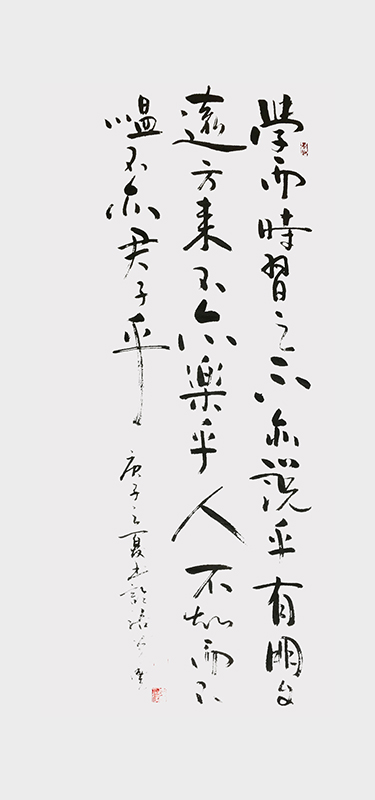 學而時習之不亦說乎有朋自
遠方來不亦樂乎人不知而不
慍不亦君子乎
庚子之夏书論語